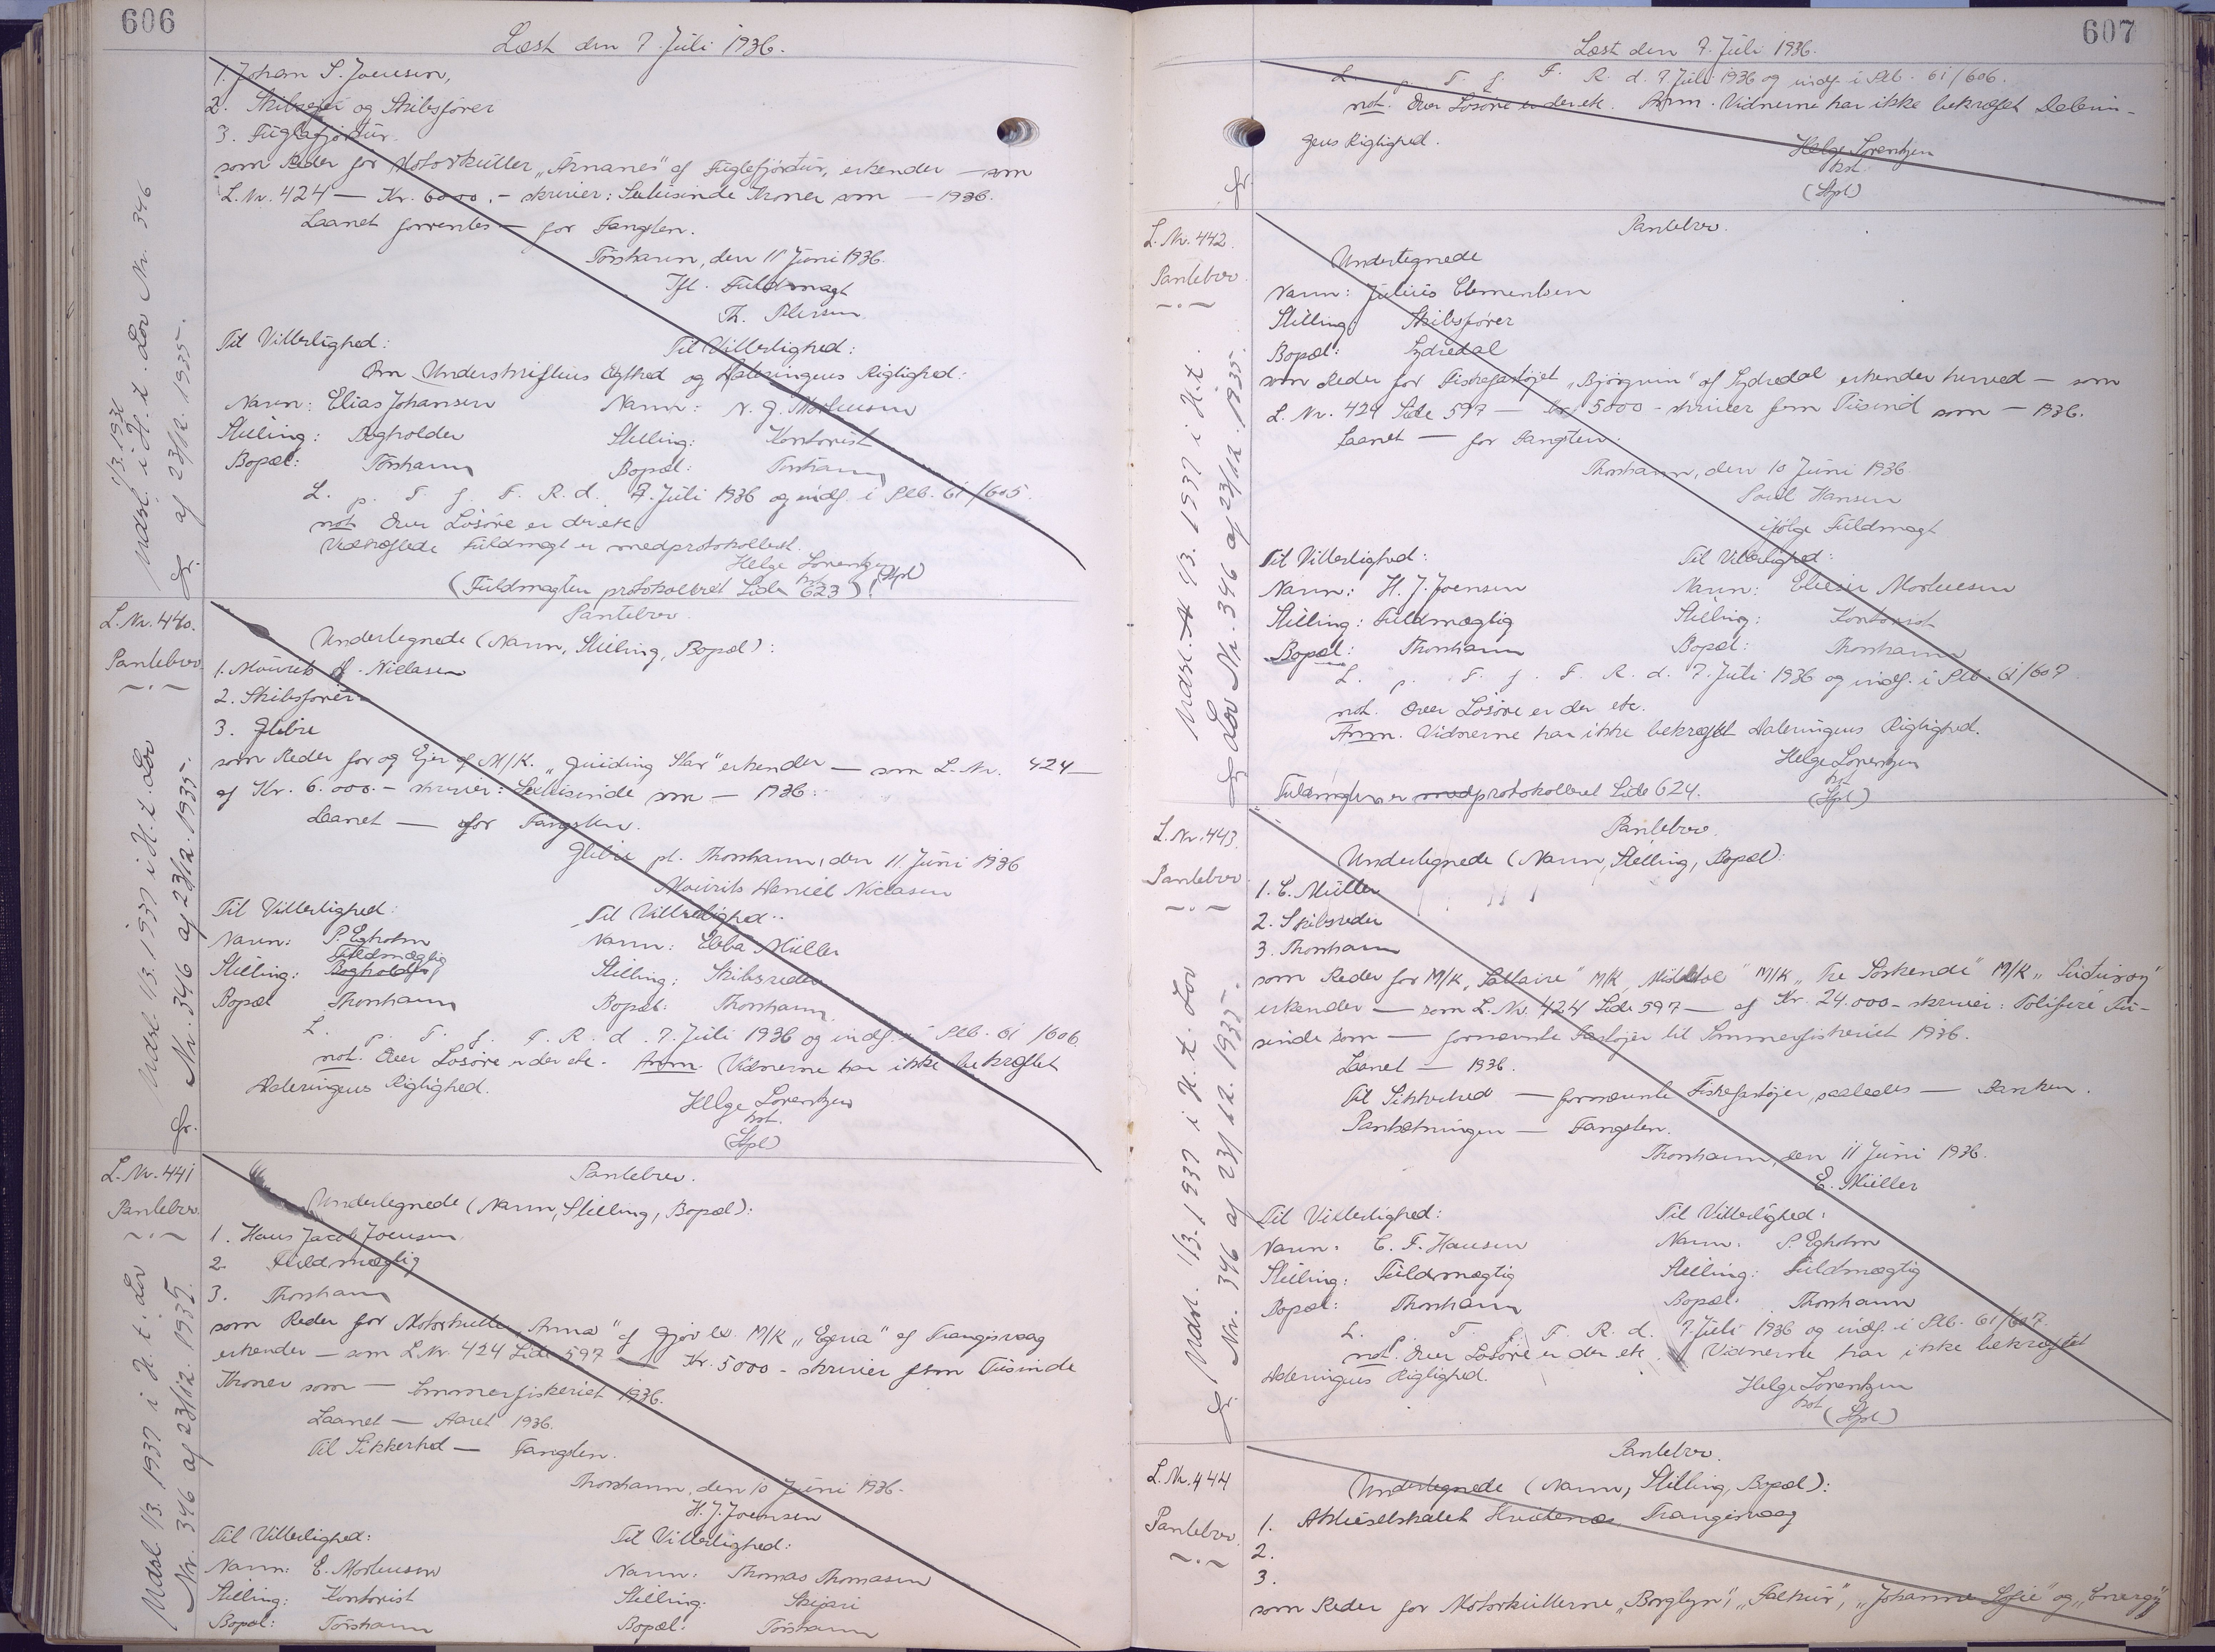 606
Læst den 7. Juli 1936.
1. Johan S. Joensen,
2. Skibsejer og Skibsfører
3. Fuglafjørdur.
som Reder for Motorkutter "Arnanes" af Fuglefjordur, erkender — som
L. Nr. 424 — Kr. 6000.- skriver: Sekstusinde Kroner som — 1936.
Laanet forrentes — for Fangsten.
Tórshavn, den 11 Juni 1936.
Ifl. Fuldmagt
Th. Petersen
Til Vitterlighed: Til Vitterlighed:
Om Underskriftens Ægthed og Dateringens Rigtighed:
Navn: Elias Johansen Navn: N. J. Mortensen
Stilling: Bogholder Stilling: Kontorist
Bopæl: Tórshavn Bopæl: Tórshavn
L. p. T. f. F. R. d. 7. Juli 1936 og indf. i Plb. 61/605.
not. Over Løsøre er der etc.
Vedhæftede Fuldmagt er medprotokolleret.
Helge Lorentzen
kst. (Stpl)
(Fuldmagten protokolleret Side 623)
Udsl. 1/3 1937 i H. t. Lov Nr. 346
af 23/12. 1935.
L. Nr. 440.
Pantebrev
Pantebrev.
Undertegnede (Navn, Stilling, Bopæl):
1. Mourits D. Niclasen
2. Skibsfører
3. Glibre
som Reder for og Ejer af M/K. "Guiding Star" erkender — som L. Nr. 424 —
af Kr. 6.000.- skriver: Sekstusinde som — 1936.
Laanet — for Fangsten.
Glibre pt. Thorshavn, den 11 Juni 1936
Mourits Daniel Niclasen
Til Vitterlighed: Til Vitterlighed:
Navn: P. Egholm Navn: Ebba Müller
Fuldmægtig
Stilling: Bogholder Stilling: Skibsreder
Bopæl Thorshavn Bopæl: Thorshavn.
L. p. T. f. F. R. d. 7. Juli 1936 og indf. i Plb. 61/606.
not. Over Løsøre er der etc. Anm. Vidnerne har ikke bekræftet
Dateringens Rigtighed.
Helge Lorentzen
kst.
(Stpl)
Udsl. 1/3. 1937 i H. t. Lov
Nr. 346 af 23/12. 1935.
L. Nr. 441
Pantebrev.
Pantebrev.
Undertegnede (Navn, Stilling, Bopæl):
1. Hans Jacob Joensen
2. Fuldmægtig
3. Thorshavn
som Reder for Motorkutter "Anna" af Gjov ex. M/K "Egeria" af Trangisvaag
erkender — som L. Nr. 424 Side 597 — Kr. 5000 - skriver fem Tusinde
Kroner som — Sommerfiskeriet 1936.
Laanet — Aaret 1936.
Til Sikkerhed — Fangsten.
Thorshavn, den 10 Juni 1936.
H. J. Joensen
Til Vitterlighed: Til Vitterlighed:
Navn: E. Mortensen Navn: Thomas Thomasen
Stilling: Kontorist Stilling:
Bopæl: Tórshavn Bopæl: Tórshavn
Udsl. 1/3. 1937 i H. t. Lov
Nr. 346 af 23/12. 1935.
607
Læst den 7. Juli 1936.
L. p. T. f. F. R. d. 7 Juli 1936 og indf. i Plb. 61/606.
not. Over Løsøre er der etc. Anm. Vidnerne har ikke bekræftet Daterin-
gens Rigtighed.
Helge Lorentzen
kst.
(Stpl)
L. Nr. 442.
Pantebrev
Pantebrev.
Undertegnede
Navn: Julius Clementsen
Stilling: Skibsfører
Bopæl: Sydredal
som Reder for Fiskefartøjet "Bjørgvin" af Sydredal erkender herved — som
L. Nr. 424 Side 597 — Kr. 5000 - skriver fem Tusind som — 1936.
Laanet — for Fangsten.
Thorshavn, den 10 Juni 1936.
Poul Hansen
ifølge Fuldmagt
Til Vitterlighed: Til Vitterlighed:
Navn: H. J. Joensen Navn: Elieser Mortensen
Stilling: Fuldmægtig Stilling: Kontorist
Bopæl: Thorshavn Bopæl: Thorshavn
L. p. T. f. F. R. d. 7. Juli 1936 og indf. i Plb. 61/607.
not. Over Løsøre er der etc.
Anm. Vidnerne har ikke bekræftet Dateringens Rigtighed.
Helge Lorentzen
kst.
(Stpl)
Fuldmagten er medprotokolleret Side 624.
Udsl. 1/3. 1937 i H. t.
Lov Nr. 346 af 23/12. 1935.
L. Nr. 443.
Pantebrev
Pantebrev.
Undertegnede (Navn, Stilling, Bopæl):
1. E. Müller
2. Skibsreder
3. Thorshavn
som Reder for M/K "Voltaire" M/K "Misletoe" M/K "Tre Søskende" M/K "Suduroy"
erkender — som L. Nr. 424 Side 597 — af Kr. 24.000 - skriver: Totifire Tu-
sinde som — fornævnte Fartøjer til Sommerfiskeriet 1936.
Laanet — 1936.
Til Sikkerhed — fornævnte Fiskefartøjer, saaledes — Banken.
Pantsætningen — Fangsten.
Thorshavn, den 11 Juni 1936.
E. Müller
Til Vitterlighed: Til Vitterlighed:
Navn: C. F. Hansen Navn: P. Egholm
Stilling: Fuldmægtig Stilling: Fuldmægtig
Bopæl: Thorshavn Bopæl: Thorshavn
L. p. T. f. F. R. d. 7 Juli 1936 og indf. i Plb. 61/607.
not. Over Løsøre er der etc. Vidnerne har ikke bekræftet
Dateringens Rigtighed.
Helge Lorentzen
kst.
(Stpl.)
Udsl. 1/3. 1937 i H. t. Lov
Nr. 346 af 23/12. 1935.
L. Nr. 444
Pantebrev.
Pantebrev.
Undertegnede (Navn, Stilling, Bopæl):
1. Aktieselskabet Hvidenæs, Trangisvaag
2.
3.
som Reder for Motorkutterne "Borglyn", "Falkur", "Johanne Sofie" og "Energy"